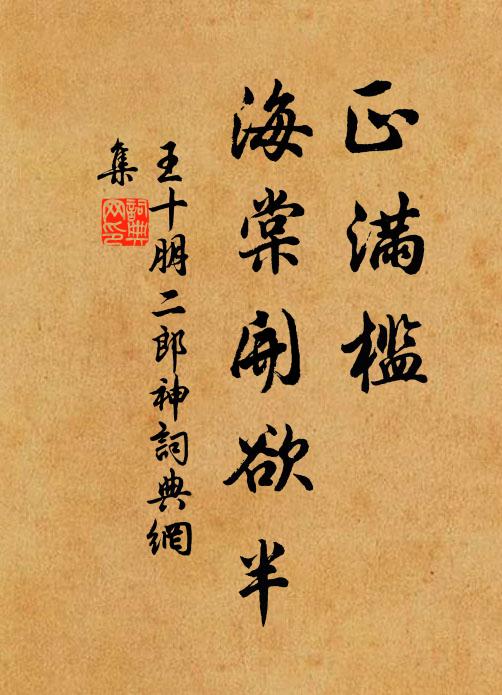 正满槛
海棠開欲半
王十朋二郎神詞典網
集
詞典
网印